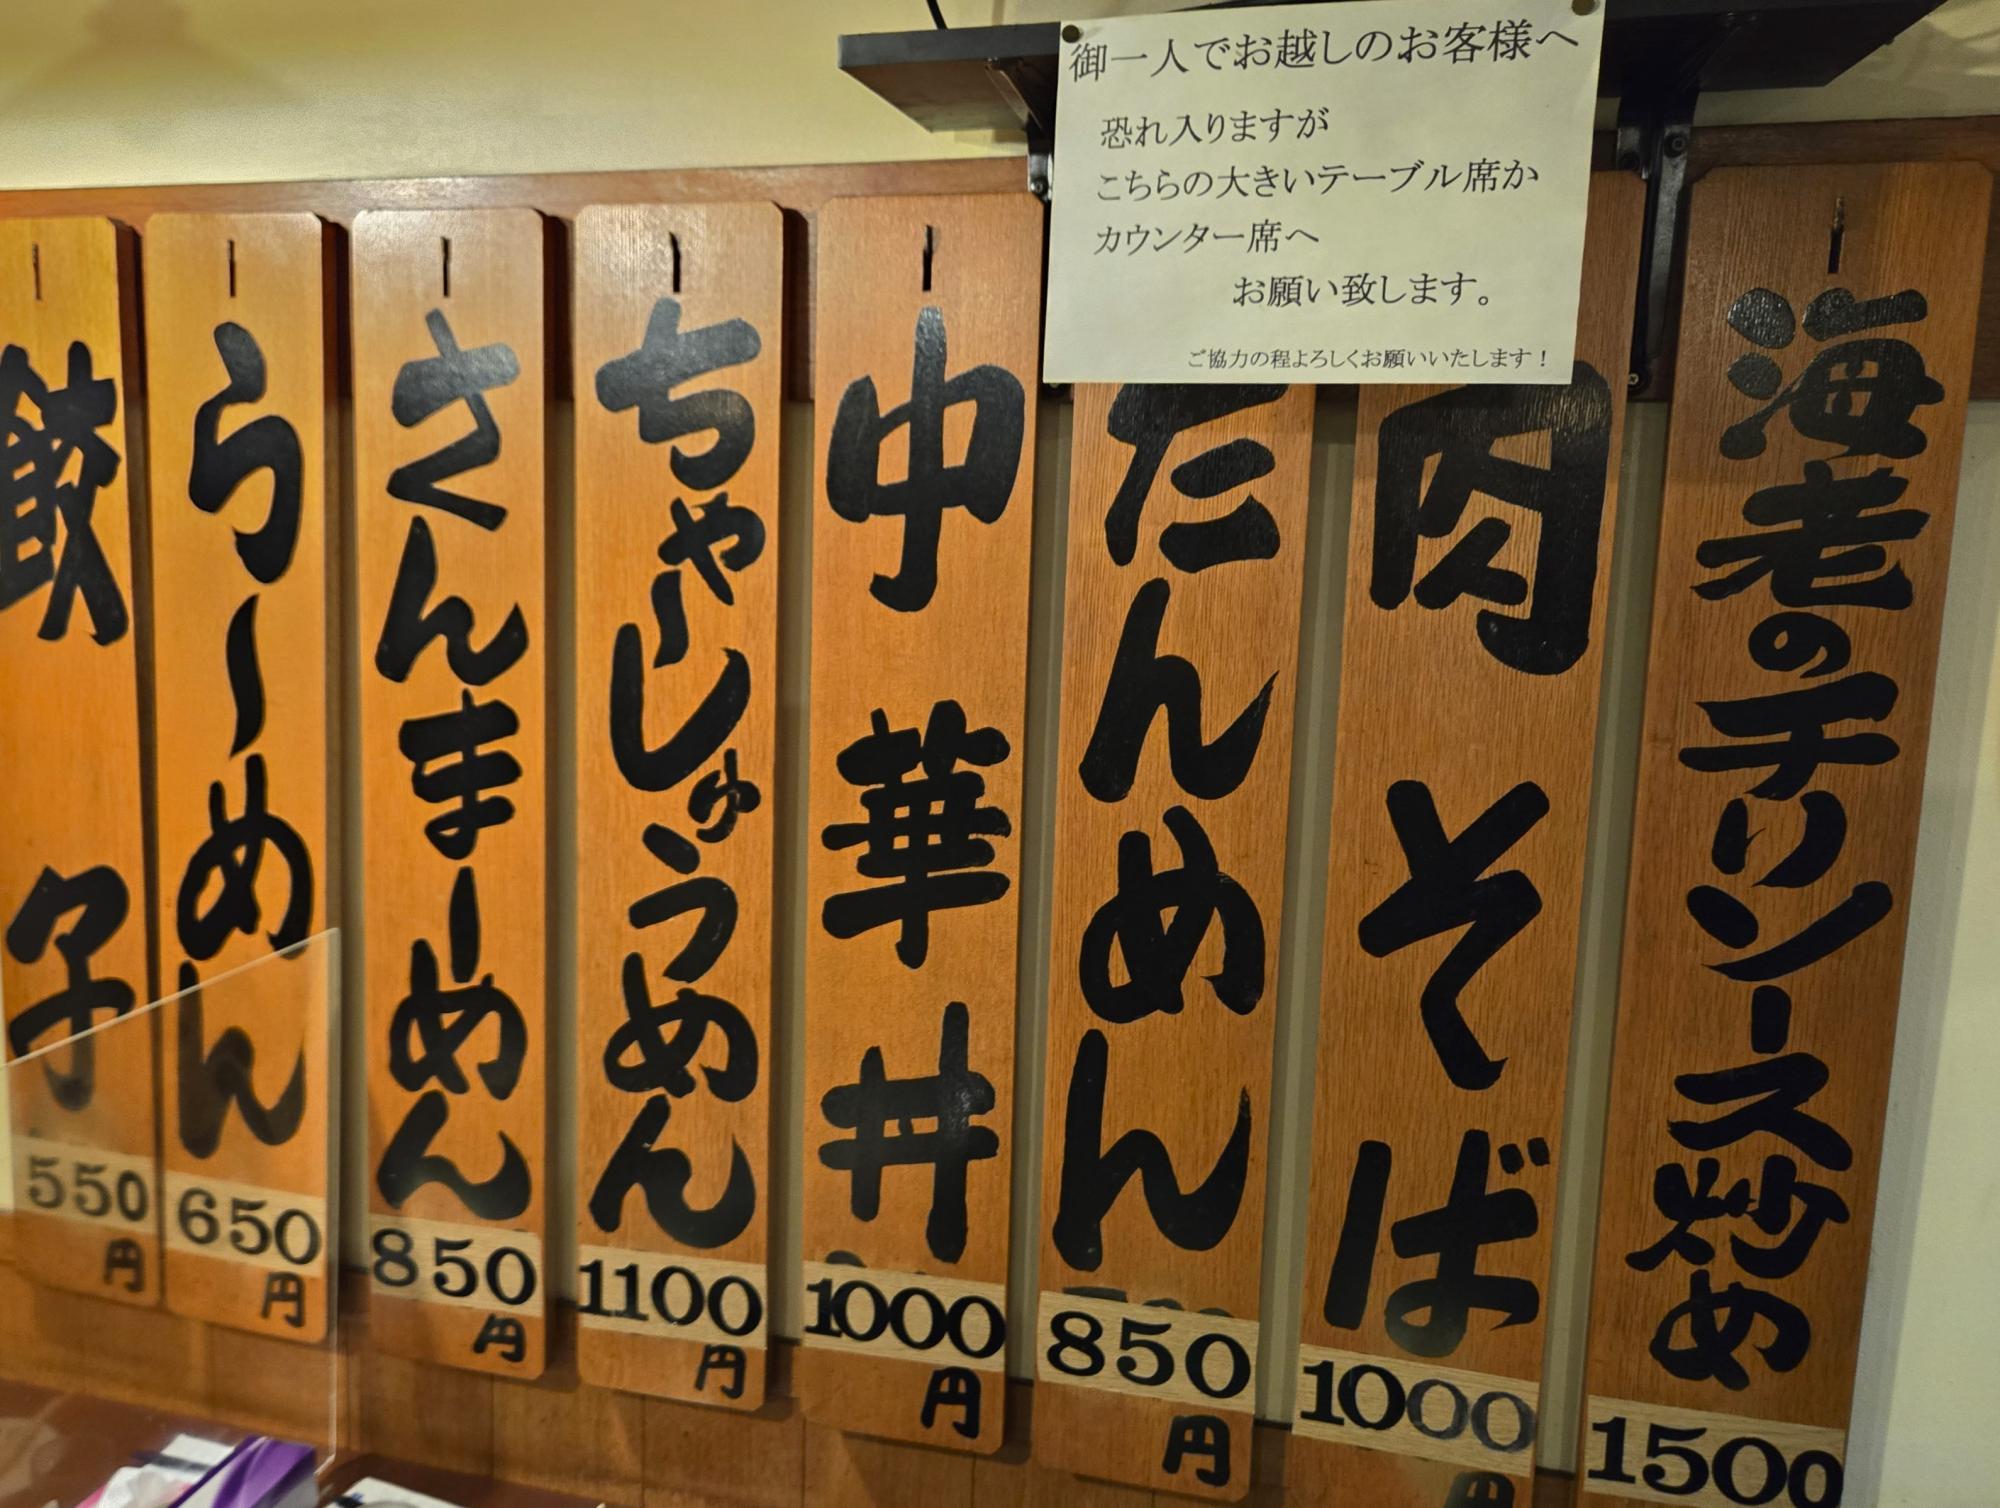 御一人でお越しのお客様へ
恐れ入りますが
こちらの大きいテーブル席か
カウンター席へ
お願い致します。
ご協力の程よろしくお願いいたします！
海老のチリソース炒め
1500
肉そば
1000
円
たんめん
850
円
中華丼
1000
円
ちゃーしゅうめん
1100
円
さんまーめん
850
円
らーめん
650
円
餃子
550
円